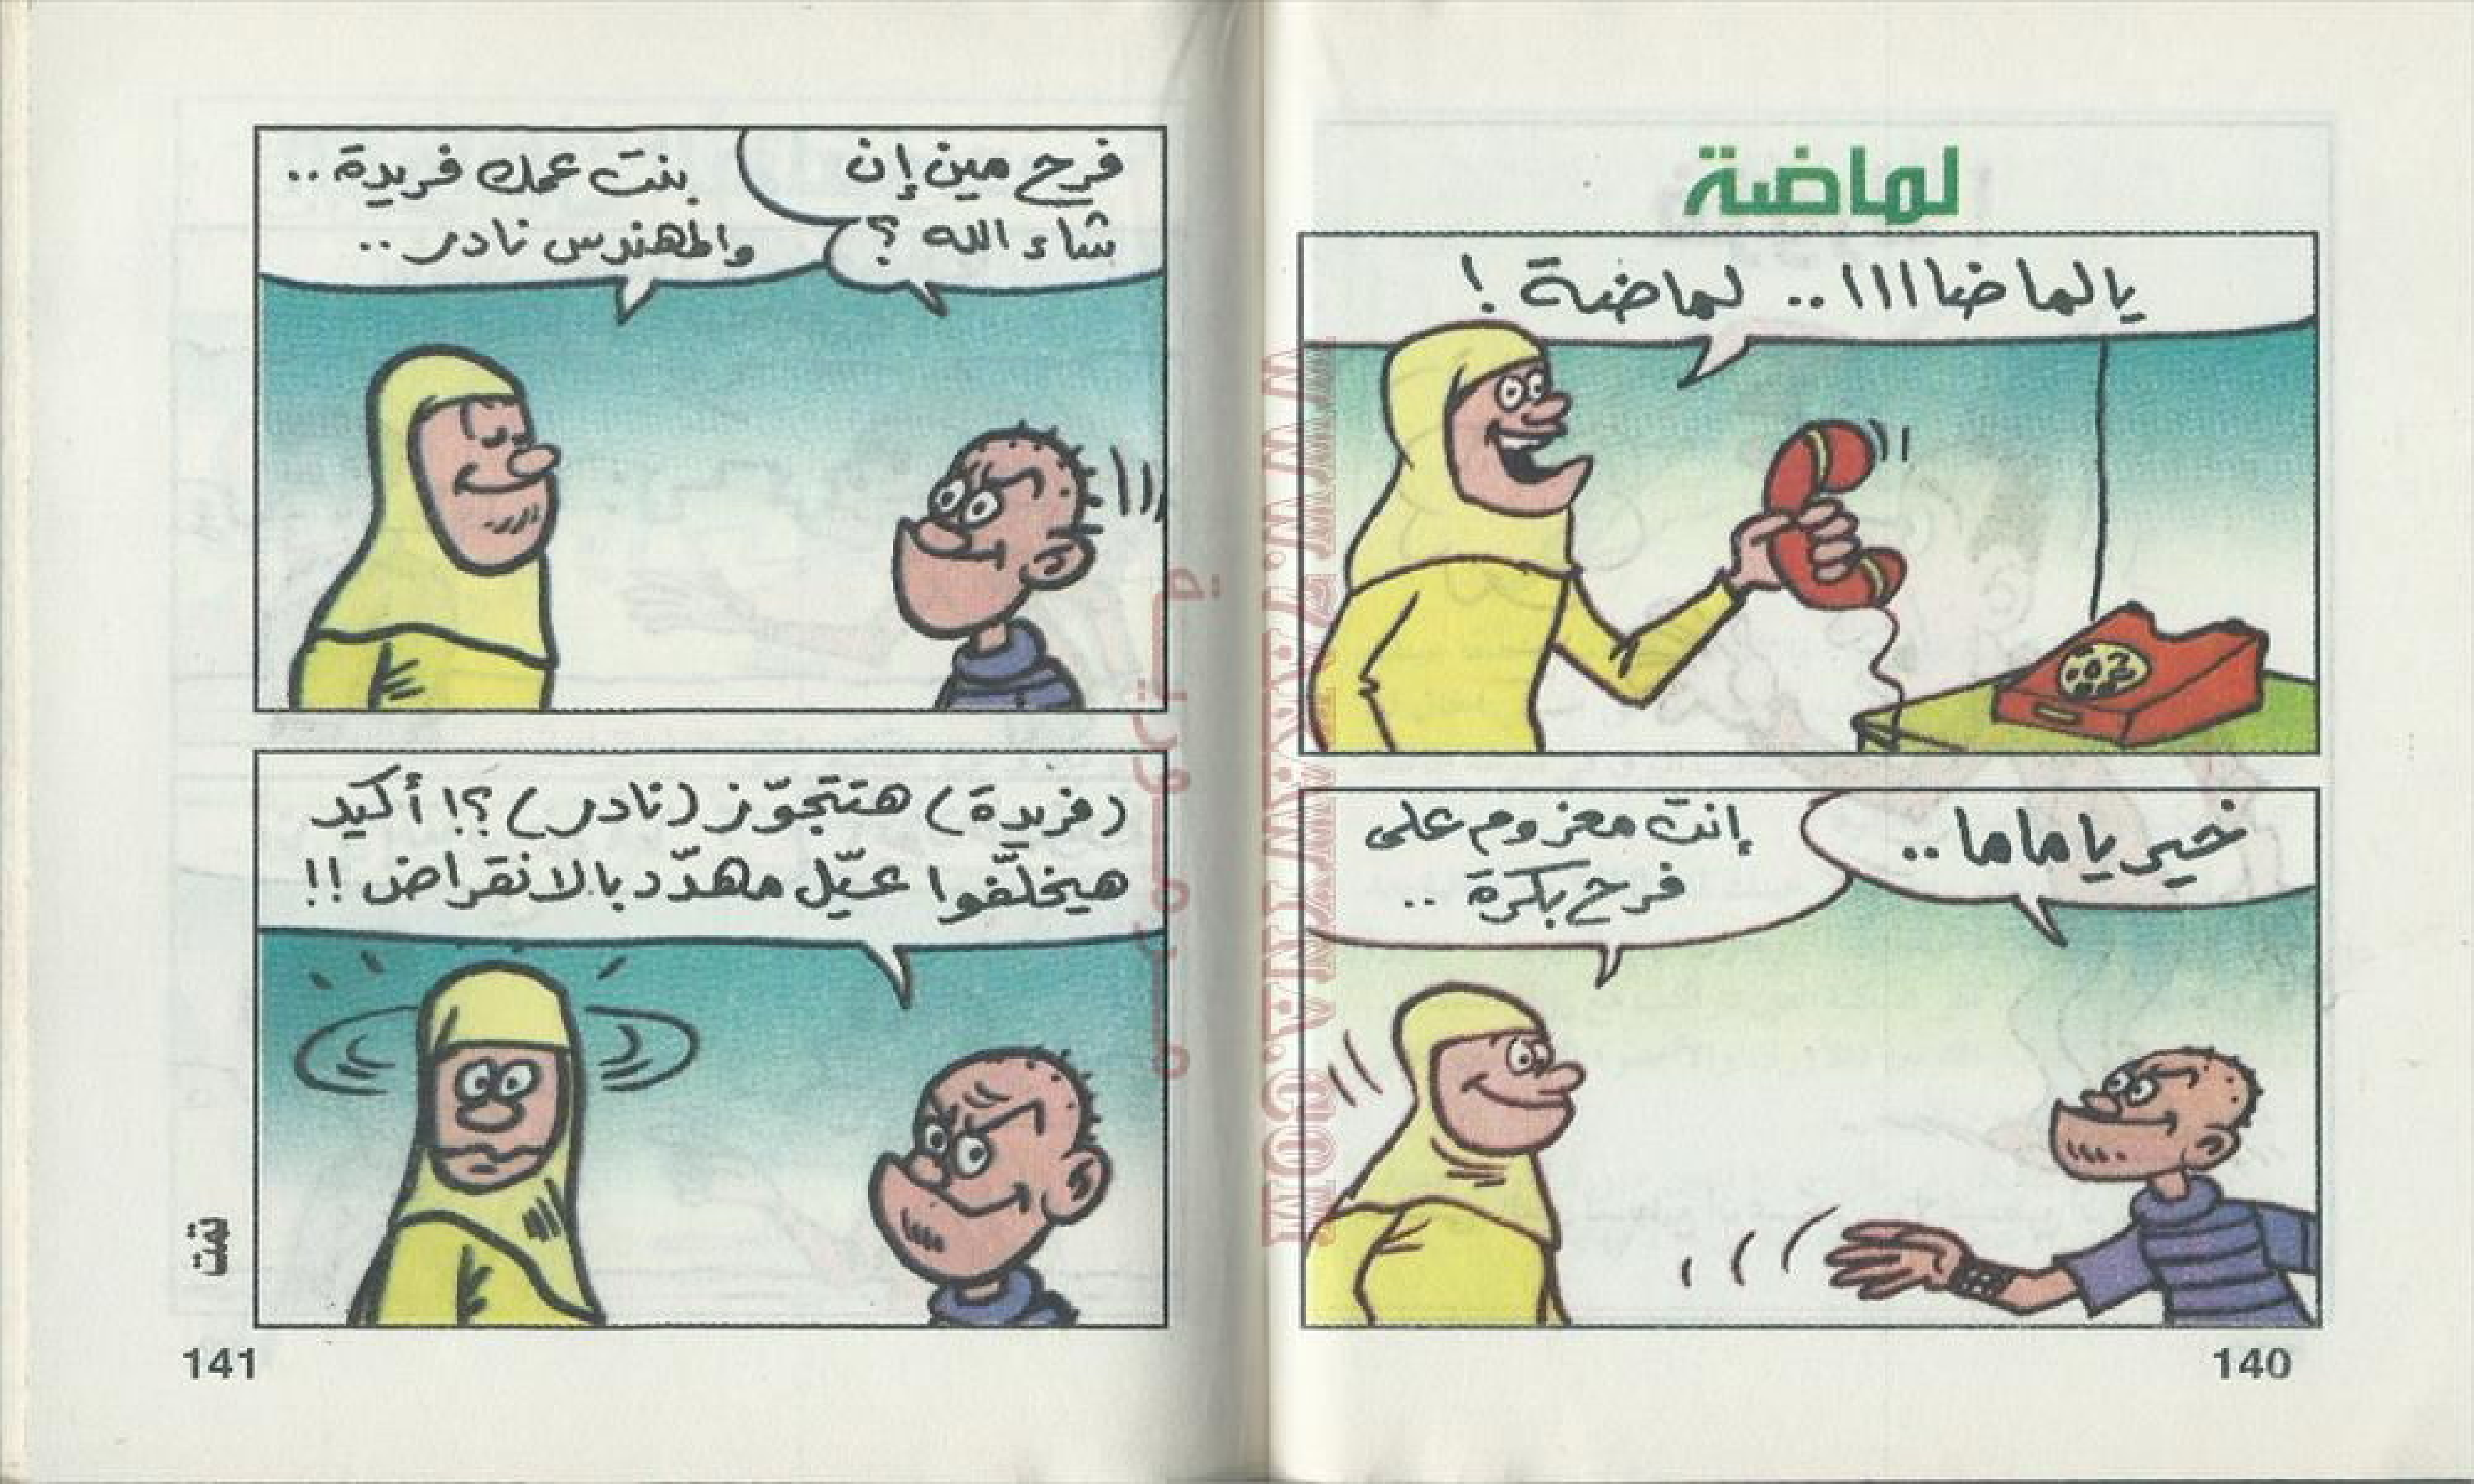 لماضة
يالماضااااا.. لماضة !
خير يا ماما..
إنت معزوم على
فرح بكرة ..
140
فرح مين إن
شاء الله ؟
بنت عمك فريدة ..
والمهندس نادر ..
(فريدة) هتتجوّز (نادر) ؟! أكيد
هيخلّفوا عيّل مهدّد بالانقراض !!
تمت
141